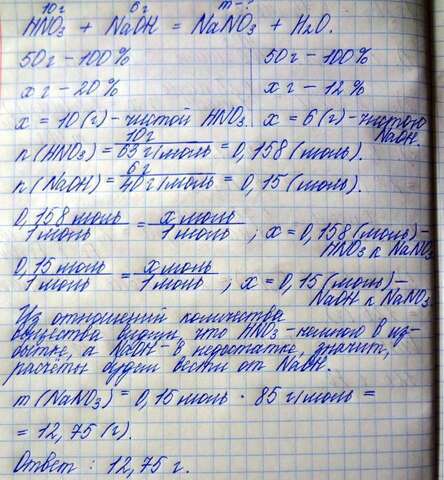 10г 6г m-?
HNO₃ + NaOH = NaNO₃ + H₂O.
50г - 100% 50г - 100%
xг - 20% xг - 12%
x = 10(г) - чистой HNO₃. x = 6(г) - чистого NaOH.
n(HNO₃) = 10г / 63 г/моль = 0,158 (моль).
n(NaOH) = 6г / 40 г/моль = 0,15 (моль).
0,158 моль / 1 моль = x моль / 1 моль ; x = 0,158 (моль) - HNO₃ к NaNO₃
0,15 моль / 1 моль = x моль / 1 моль ; x = 0,15 (моль) - NaOH к NaNO₃
Из отношений количества
вещества видим, что HNO₃ - немного в из-
бытке, а NaOH - в недостатке, значит,
расчёты будем вести от NaOH.
m(NaNO₃) = 0,15 моль · 85 г/моль =
= 12,75 (г).
Ответ: 12,75 г.